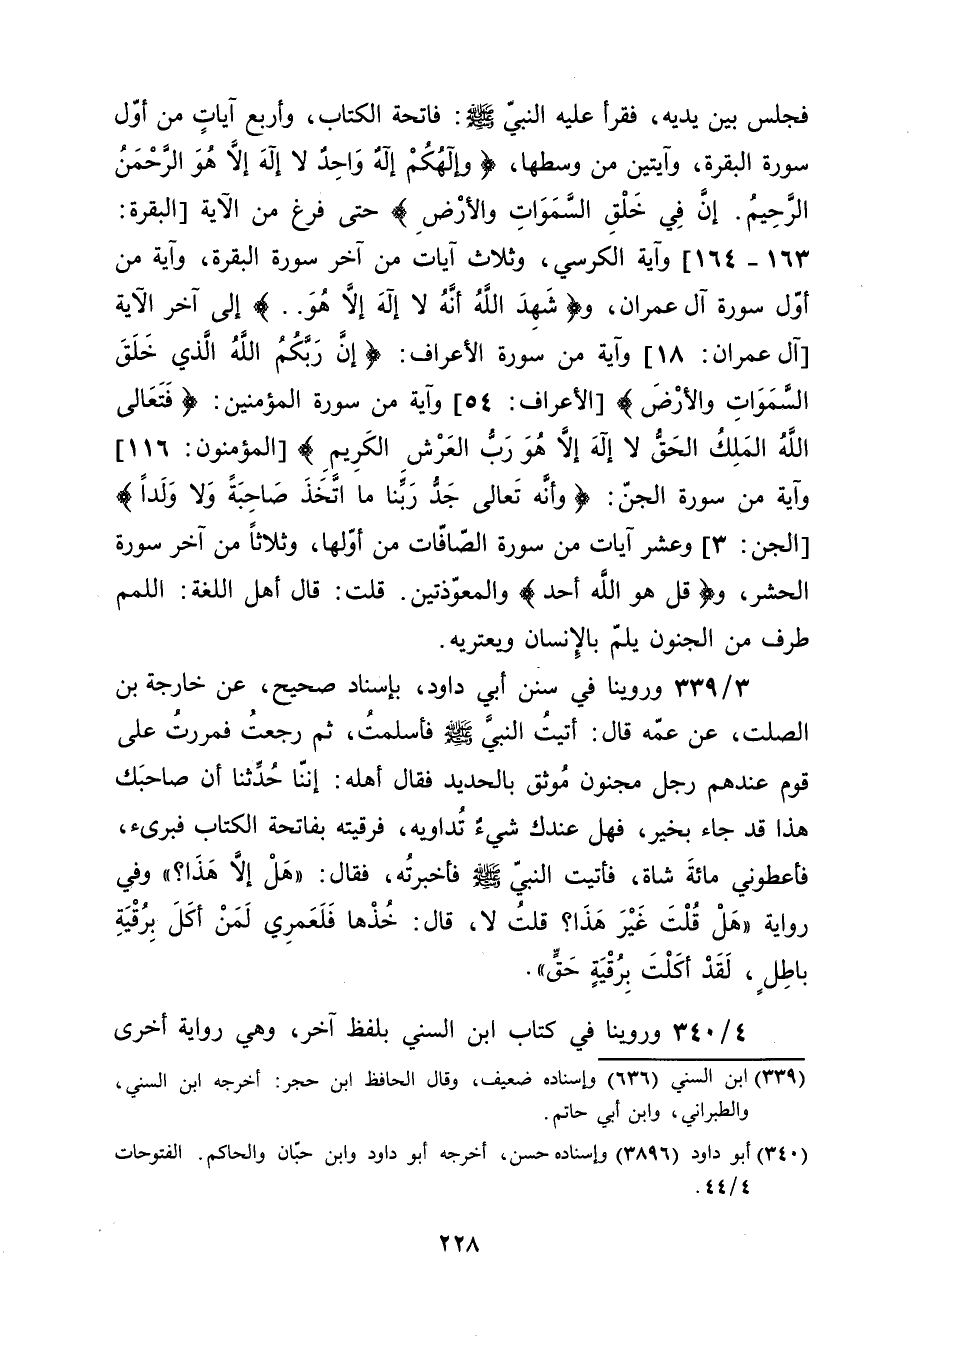 فجلس بين يديه، فقرأ عليه النبيّ ﷺ: فاتحة الكتاب، وأربع آياتٍ من أوّل
سورة البقرة، وآيتين من وسطها، ﴿ وإلَهُكُمْ إلَهٌ وَاحِدٌ لا إلَهَ إلاَّ هُوَ الرَّحْمَنُ
الرَّحِيمُ. إنَّ فِي خَلْقِ السَّمَوَاتِ والأرْضِ ﴾ حتى فرغ من الآية [البقرة:
١٦٣ ـ ١٦٤] وآية الكرسي، وثلاث آيات من آخر سورة البقرة، وآية من
أوّل سورة آل عمران، و﴿ شَهِدَ اللَّهُ أنَّهُ لا إلَهَ إلاَّ هُوَ.. ﴾ إلى آخر الآية
[آل عمران: ١٨] وآية من سورة الأعراف: ﴿ إنَّ رَبَّكُمُ اللَّهُ الَّذي خَلَقَ
السَّمَوَاتِ والأرْضَ ﴾ [الأعراف: ٥٤] وآية من سورة المؤمنين: ﴿ فَتَعَالى
اللَّهُ المَلِكُ الحَقُّ لا إلَهَ إلاَّ هُوَ رَبُّ العَرْشِ الكَرِيمِ ﴾ [المؤمنون: ١١٦]
وآية من سورة الجنّ: ﴿ وأنَّه تَعالى جَدُّ رَبِّنا ما اتَّخَذَ صَاحِبَةً وَلا وَلَداً ﴾
[الجن: ٣] وعشر آيات من سورة الصّافّات من أوّلها، وثلاثاً من آخر سورة
الحشر، و﴿ قل هو اللَّه أحد ﴾ والمعوّذتين. قلت: قال أهل اللغة: اللمم
طرف من الجنون يلمّ بالإِنسان ويعتريه.
٣/٣٣٩ وروينا في سنن أبي داود، بإسناد صحيح، عن خارجة بن
الصلت، عن عمّه قال: أتيتُ النبيَّ ﷺ فأسلمتُ، ثم رجعتُ فمررتُ على
قوم عندهم رجل مجنون مُوثق بالحديد فقال أهله: إننّا حُدِّثنا أن صاحبَك
هذا قد جاء بخير، فهل عندك شيءٌ تُداويه، فرقيته بفاتحة الكتاب فبرىء،
فأعطوني مائةَ شاة، فأتيت النبيّ ﷺ فأخبرتُه، فقال: «هَلْ إلاَّ هَذَا؟» وفي
رواية «هَلْ قُلْتَ غَيْرَ هَذَا؟ قلتُ لا، قال: خُذْها فَلَعَمرِي لَمَنْ أكَلَ بِرُقْيَةِ
باطِلٍ، لَقَدْ أكَلْتَ بِرُقْيَةِ حَقٍّ».
٤/٣٤٠ وروينا في كتاب ابن السني بلفظ آخر، وهي رواية أخرى
(٣٣٩) ابن السني (٦٣٦) وإسناده ضعيف، وقال الحافظ ابن حجر: أخرجه ابن السني،
والطبراني، وابن أبي حاتم.
(٣٤٠) أبو داود (٣٨٩٦) وإسناده حسن، أخرجه أبو داود وابن حبّان والحاكم. الفتوحات
٤/٤٤.
٢٢٨